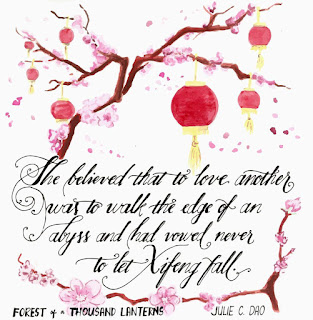 She believed that to love another
was to walk the edge of an
abyss and had vowed never
to let Xifeng fall.
FOREST of a THOUSAND LANTERNS JULIE C. DAO